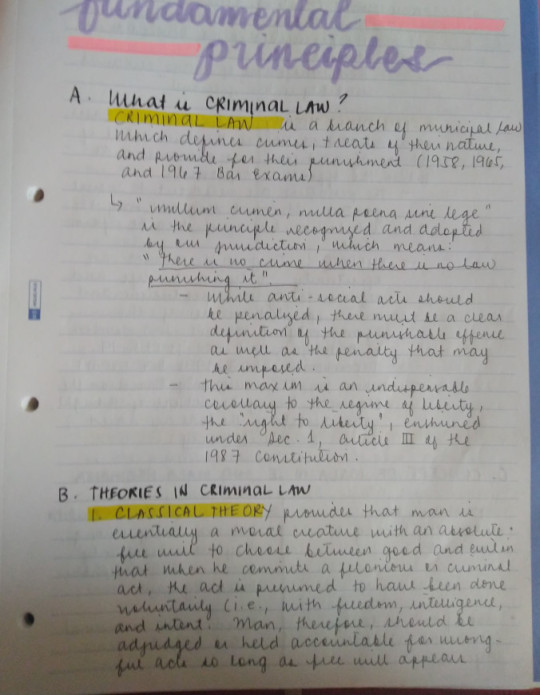 fundamental
principles
A. What is CRIMINAL LAW?
CRIMINAL LAW is a branch of municipal law
which defines crimes, treats of their nature,
and provide for their punishment (1958, 1965,
and 1967 Bar Exams)
↳ "nullum crimen, nulla poena sine lege"
is the principle recognized and adopted
by our jurisdiction, which means:
"there is no crime when there is no law
punishing it".
- While anti-social acts should
be penalized, there must be a clear
definition of the punishable offense
as well as the penalty that may
be imposed.
- this maxim is an indispensable
corollary to the regime of liberty,
the "right to liberty", enshrined
under Sec. 1, article III of the
1987 Constitution.
B. THEORIES IN CRIMINAL LAW
1. CLASSICAL THEORY provides that man is
essentially a moral creature with an absolute
free will to choose between good and evil
that when he commits a felonious or criminal
act, the act is presumed to have been done
voluntarily (i.e., with freedom, intelligence,
and intent. Man, therefore, should be
adjudged or held accountable for wrong-
ful acts so long as free will appears